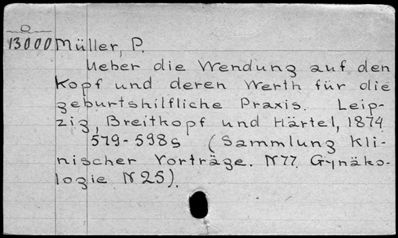 a
13000 Müller, P.
Ueber die Wendung auf den
Kopf und deren Werth für die
geburtshilfliche Praxis. Leip-
zig, Breitkopf und Härtel, 1874
579-598s (Sammlung Kli-
nischer Vorträge. N77. Gynäko-
logie N25).